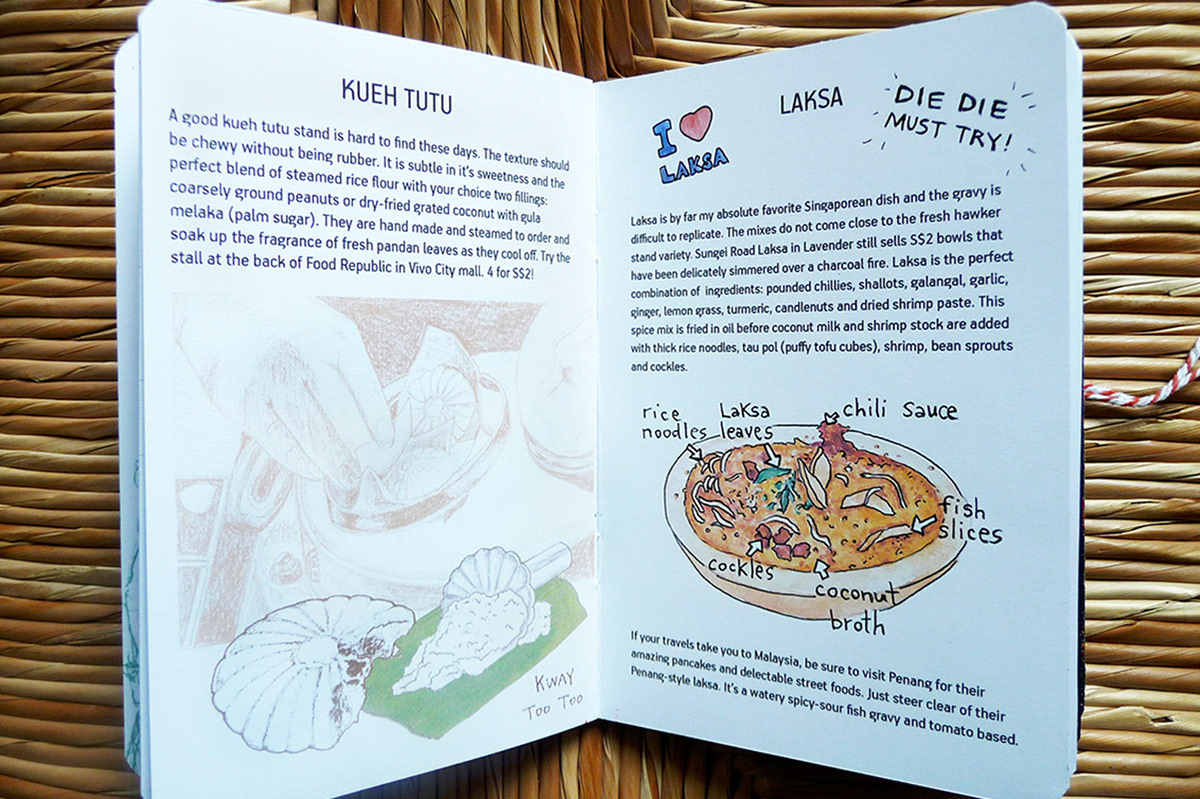 KUEH TUTU
A good kueh tutu stand is hard to find these days. The texture should
be chewy without being rubber. It is subtle in it's sweetness and the
perfect blend of steamed rice flour with your choice two fillings:
coarsely ground peanuts or dry-fried grated coconut with gula
melaka (palm sugar). They are hand made and steamed to order and
soak up the fragrance of fresh pandan leaves as they cool off. Try the
stall at the back of Food Republic in Vivo City mall. 4 for S$2!
KWAY
TOO TOO
I
LAKSA
LAKSA
DIE DIE
MUST TRY!
Laksa is by far my absolute favorite Singaporean dish and the gravy is
difficult to replicate. The mixes do not come close to the fresh hawker
stand variety. Sungei Road Laksa in Lavender still sells S$2 bowls that
have been delicately simmered over a charcoal fire. Laksa is the perfect
combination of ingredients: pounded chillies, shallots, galangal, garlic,
ginger, lemon grass, turmeric, candlenuts and dried shrimp paste. This
spice mix is fried in oil before coconut milk and shrimp stock are added
with thick rice noodles, tau pol (puffy tofu cubes), shrimp, bean sprouts
and cockles.
rice
noodles
Laksa
leaves
chili sauce
fish
slices
cockles
coconut
broth
If your travels take you to Malaysia, be sure to visit Penang for their
amazing pancakes and delectable street foods. Just steer clear of their
Penang-style laksa. It's a watery spicy-sour fish gravy and tomato based.